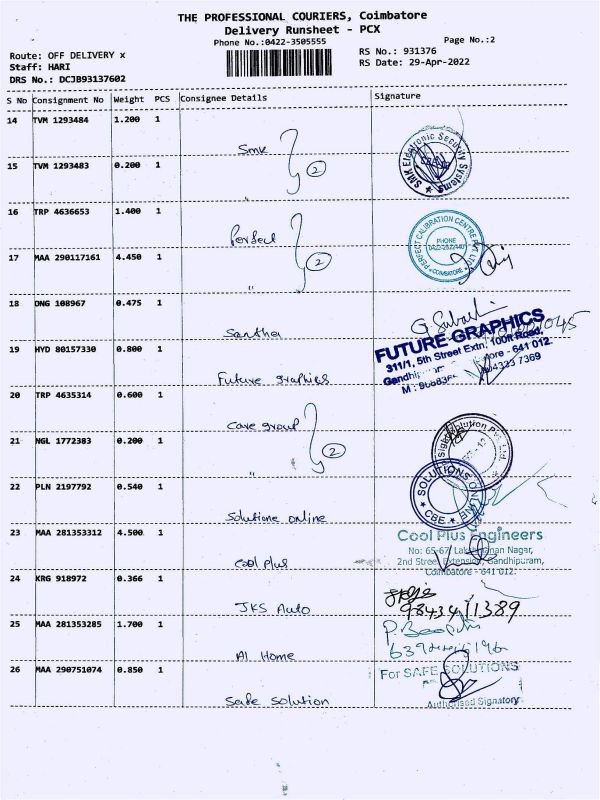 THE PROFESSIONAL COURIERS, Coimbatore
Delivery Runsheet - PCX
Phone No.:0422-3505555
Page No.:2
Route: OFF DELIVERY x
RS No.: 931376
Staff: HARI
RS Date: 29-Apr-2022
DRS No.: DCJB93137602
S No Consignment No Weight PCS Consignee Details Signature
14 TVM 1293484 1.200 1 Smk
15 TVM 1293483 0.200 1 " 2
SMK Electronic Security Systems
16 TRP 4636653 1.400 1 Perfect
17 MAA 290117161 4.450 1 " 2
PERFECT CALIBRATION CENTRE PVT LTD
PHONE
COIMBATORE
18 DNG 108967 0.475 1 Santha
19 HYD 80157330 0.800 1 Future graphics
FUTURE GRAPHICS
311/1, 5th Street Extn. 100ft Road,
641 012.
20 TRP 4635314 0.600 1 Care group
21 NGL 1772383 0.200 1 " 2
22 PLN 2197792 0.540 1 Solutione online
SOLUTIONS ONLINE
CBE
23 MAA 281353312 4.500 1 Cool plus
Cool Plus Engineers
No: 65-67, Nagar,
2nd Street Extension, Gandhipuram,
Coimbatore - 641 012.
24 KRG 918972 0.366 1 JKS Auto
25 MAA 281353285 1.700 1 AI Home
26 MAA 290751074 0.850 1 Safe solution
For SAFE SOLUTIONS
Authorised Signatory